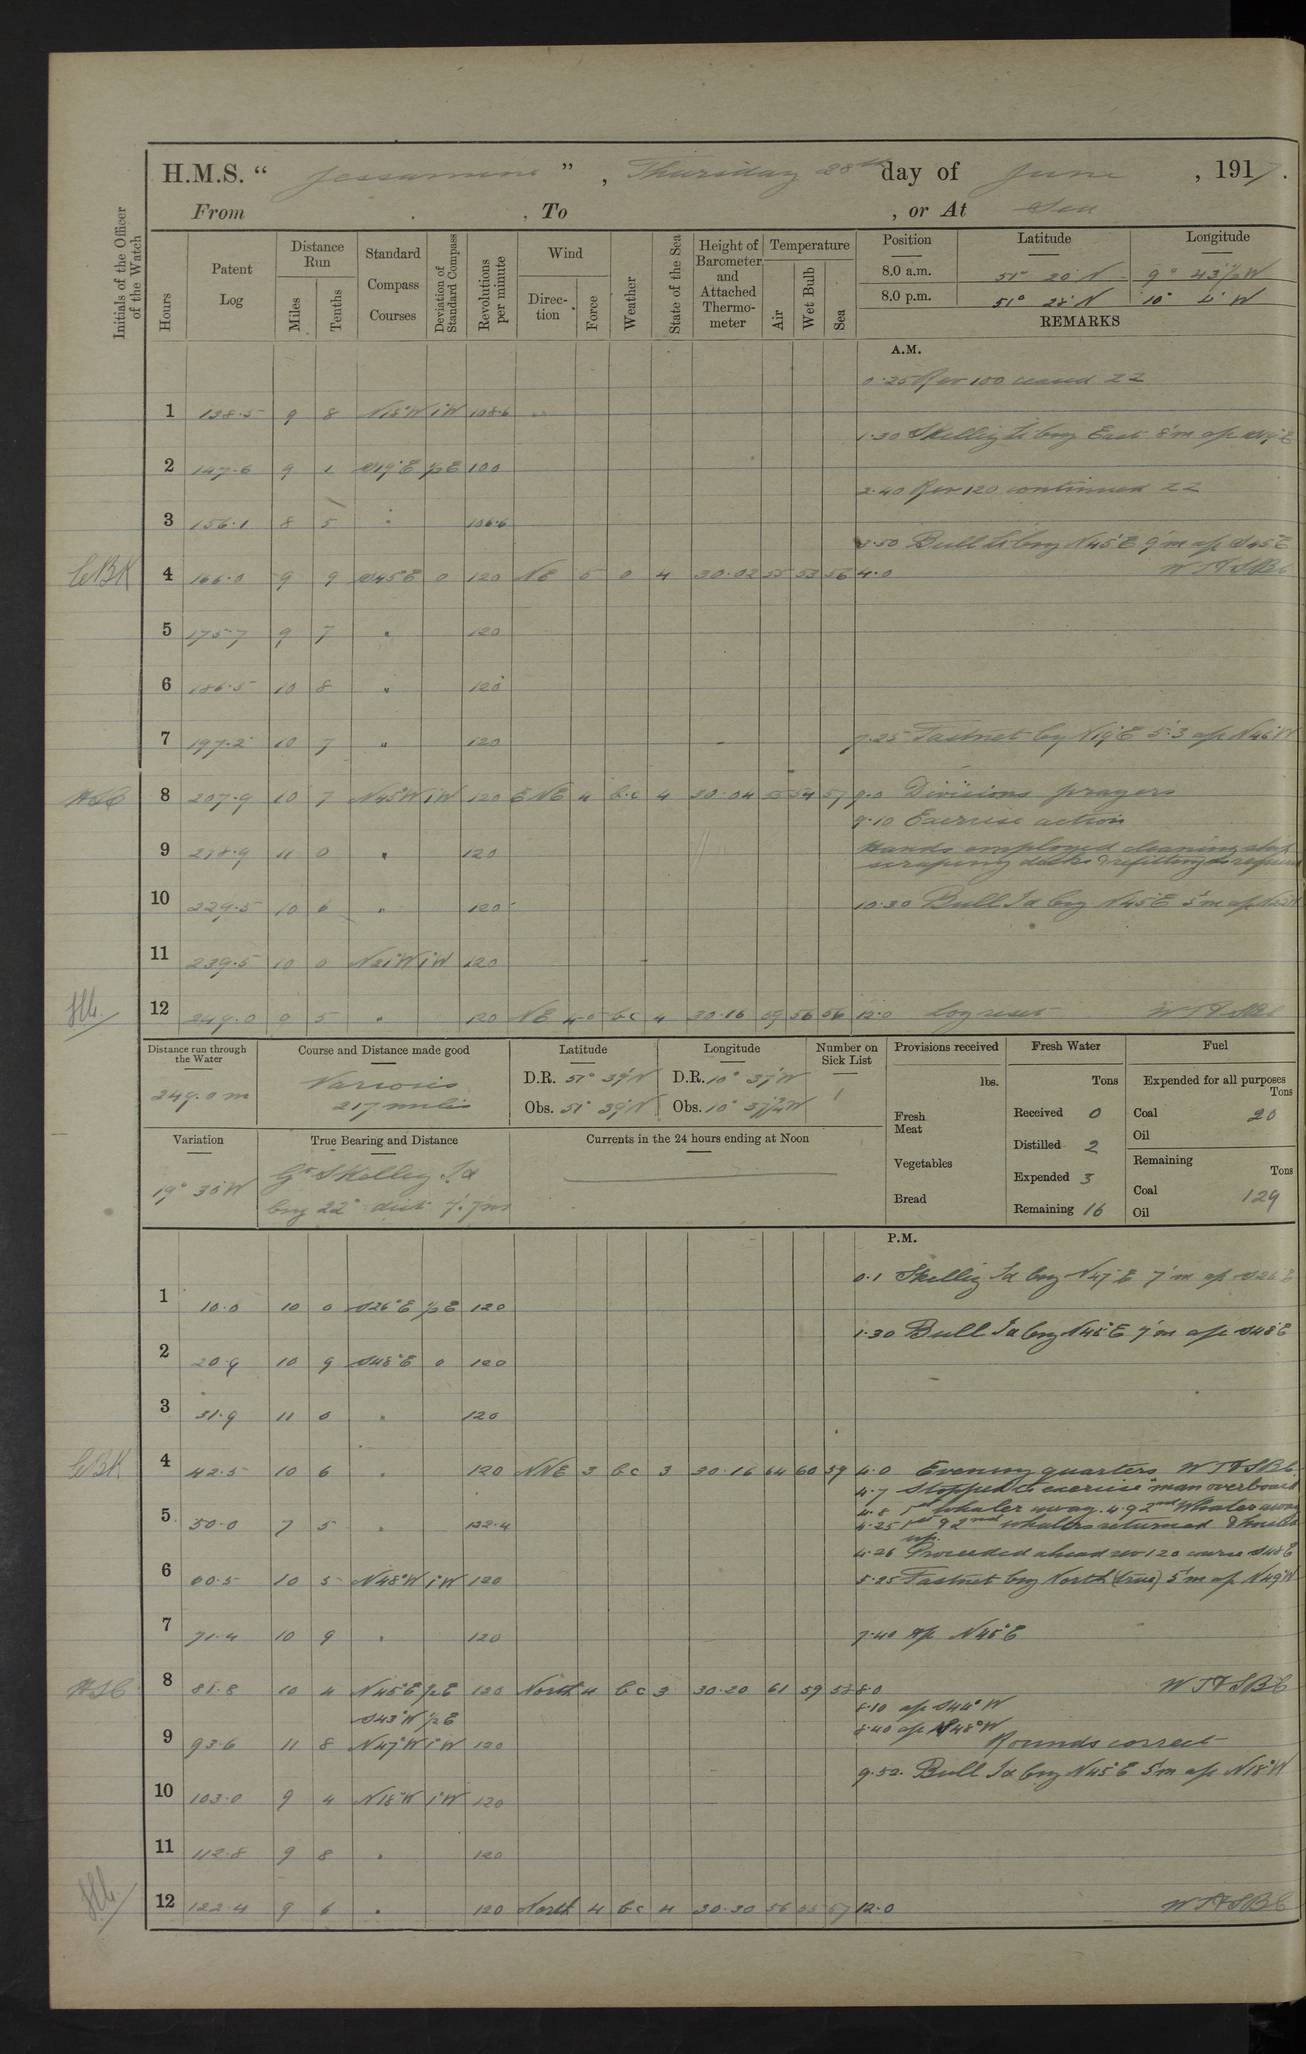 H.M.S. “ Jessamine ” , Thursday 28th day of June , 1917.
From , To , or At Sea
Initials of the Officer of the Watch
Hours
Patent Log
Distance Run
Miles
Tenths
Standard Compass Courses
Deviation of Standard Compass
Revolutions per minute
Wind
Direction
Force
Weather
State of the Sea
Height of Barometer and Attached Thermometer
Temperature
Air
Wet Bulb
Sea
Position Latitude Longitude
8.0 a.m. 51° 20' N 9° 43½' W
8.0 p.m. 51° 28' N 10° 4' W
REMARKS
A.M.
0.25 Rev 100 ceased ZZ
1 138.5 9 8 N18°W 1°W 108.6
1.30 Skellig Lt brg East 8'm a/c S19°E
2 147.6 9 1 S19°E ½E 100
2.40 Rev 120 continued ZZ
3 156.1 8 5 " 106.6
3.50 Bull Lt brg N45°E 9'm a/c S45°E
CBK 4 166.0 9 9 S45E 0 120 NE 5 0 4 30.02 55 53 56 4.0 WT&SBC
5 175.7 9 7 " 120
6 186.5 10 8 " 120
7 197.2 10 7 " 120
7.25 Fastnet brg N19°E 5'.3 a/c N45°W
HSC 8 207.9 10 7 N45°W 1°W 120 ENE 4 b.c 4 30.04 55 54 57 9.0 Divisions prayers
9.10 Exercise action
9 218.9 11 0 " 120
Hands employed cleaning ship
scraping decks & refitting as required
10 229.5 10 6 " 120
10.30 Bull Id brg N45°E 5'm a/c
11 239.5 10 0 N21°W 1°W 120
12 249.0 9 5 " 120 NE 4-5 bc 4 30.16 59 56 56 12.0 Log reset WT&SBC
Distance run through the Water
249.0 m
Course and Distance made good
Various
217 miles
Latitude
D.R. 51° 39' N
Obs. 51° 39' N
Longitude
D.R. 10° 37' W
Obs. 10° 37¾' W
Number on Sick List
1
Variation
19° 30' W
True Bearing and Distance
Gt Skellig Id
brg 22° dist 7'.7ms
Currents in the 24 hours ending at Noon
Provisions received
lbs.
Fresh Meat
Vegetables
Bread
Fresh Water
Tons
Received 0
Distilled 2
Expended 3
Remaining 16
Fuel
Expended for all purposes
Tons
Coal 20
Oil
Remaining
Tons
Coal 129
Oil
P.M.
0.1 Skellig Id brg N47°E 7'm a/c S26°E
1 10.0 10 0 S26°E ½E 120
1.30 Bull Id brg N45°E 7'm a/c S48°E
2 20.9 10 9 S48°E 0 120
3 31.9 11 0 " 120
CBK 4 42.5 10 6 " 120 NNE 3 bc 3 30.16 64 60 59 4.0 Evening quarters WT&SBC
4.7 Stopped to exercise "man overboard"
4.8 1st whaler away. 4.9 2nd Whaler away
5 50.0 7 5 " 122.4
4.25 1st & 2nd whalers returned & hoisted
up.
4.26 Proceeded ahead rev 120 course S48°E
6 60.5 10 5 N48°W 1°W 120 5.25 Fastnet brg North (true) 5'm a/c N49°W
7 71.4 10 9 " 120 7.40 a/c N45°E
HSC 8 81.8 10 4 N45°E ½E 120 North 4 bc 3 30.20 61 59 53 8.0 WT&SBC
8.10 a/c S44°W
S43°W ½E
8.40 a/c N48°W
9 93.6 11 8 N47°W 1°W 120 Rounds correct
9.52. Bull Id brg N45°E 5'm a/c N18°W
10 103.0 9 4 N18°W 1°W 120
11 112.8 9 8 " 120
12 122.4 9 6 " 120 North 4 bc 4 30.30 56 55 57 12.0 WT&SBC